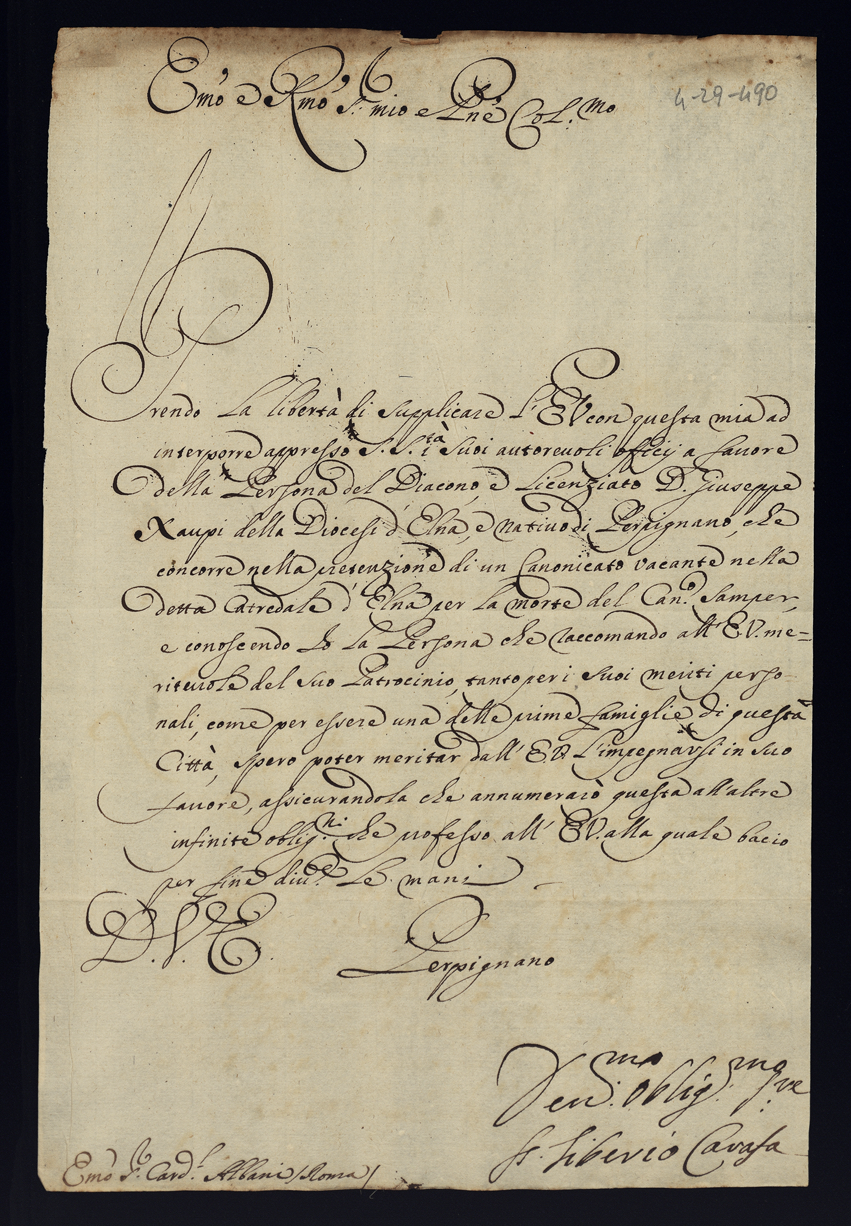 Emo e Rmo Sr. mio e Pne Col.mo
4-29-490
Prendo la libertà di supplicare l'E.V. con questa mia ad
interporre appresso S. S.tà i suoi autoreuoli officij a fauore
della Persona del Diacono, e Licenziato D. Giuseppe
Xaupi della Diocesi d'Elna, e natiuo di Perpignano, che
concorre nella pretenzione di un Canonicato vacante nella
detta Catredale d'Elna per la morte del Can.o Samper,
e conoscendo Io la Persona che raccomando all'E.V. me=
riteuole del suo Patrocinio, tanto per i suoi meriti perso-
nali, come per essere una delle prime famiglie di questa
Città, spero poter meritar dall'E.V. l'impegnarsi in suo
fauore, assicurandola che annumerarò questa all'altre
infinite oblig.ni che professo all'E.V. alla quale bacio
per fine diu.te le mani
D. V. E.
Perpignano
Deu.mo oblig.mo s.re
fr. Liberio Cavasa
Emo Sr. Card.l Albani /Roma/